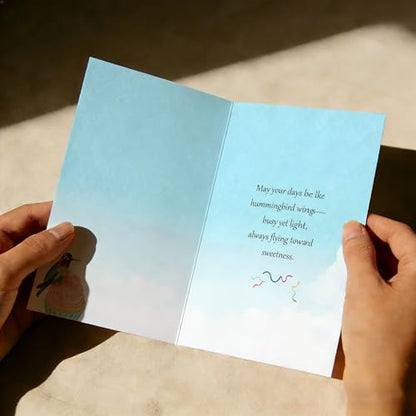 May your days be lke
hummingbird wings—
busy yet light,
always flying toward
sweetness.